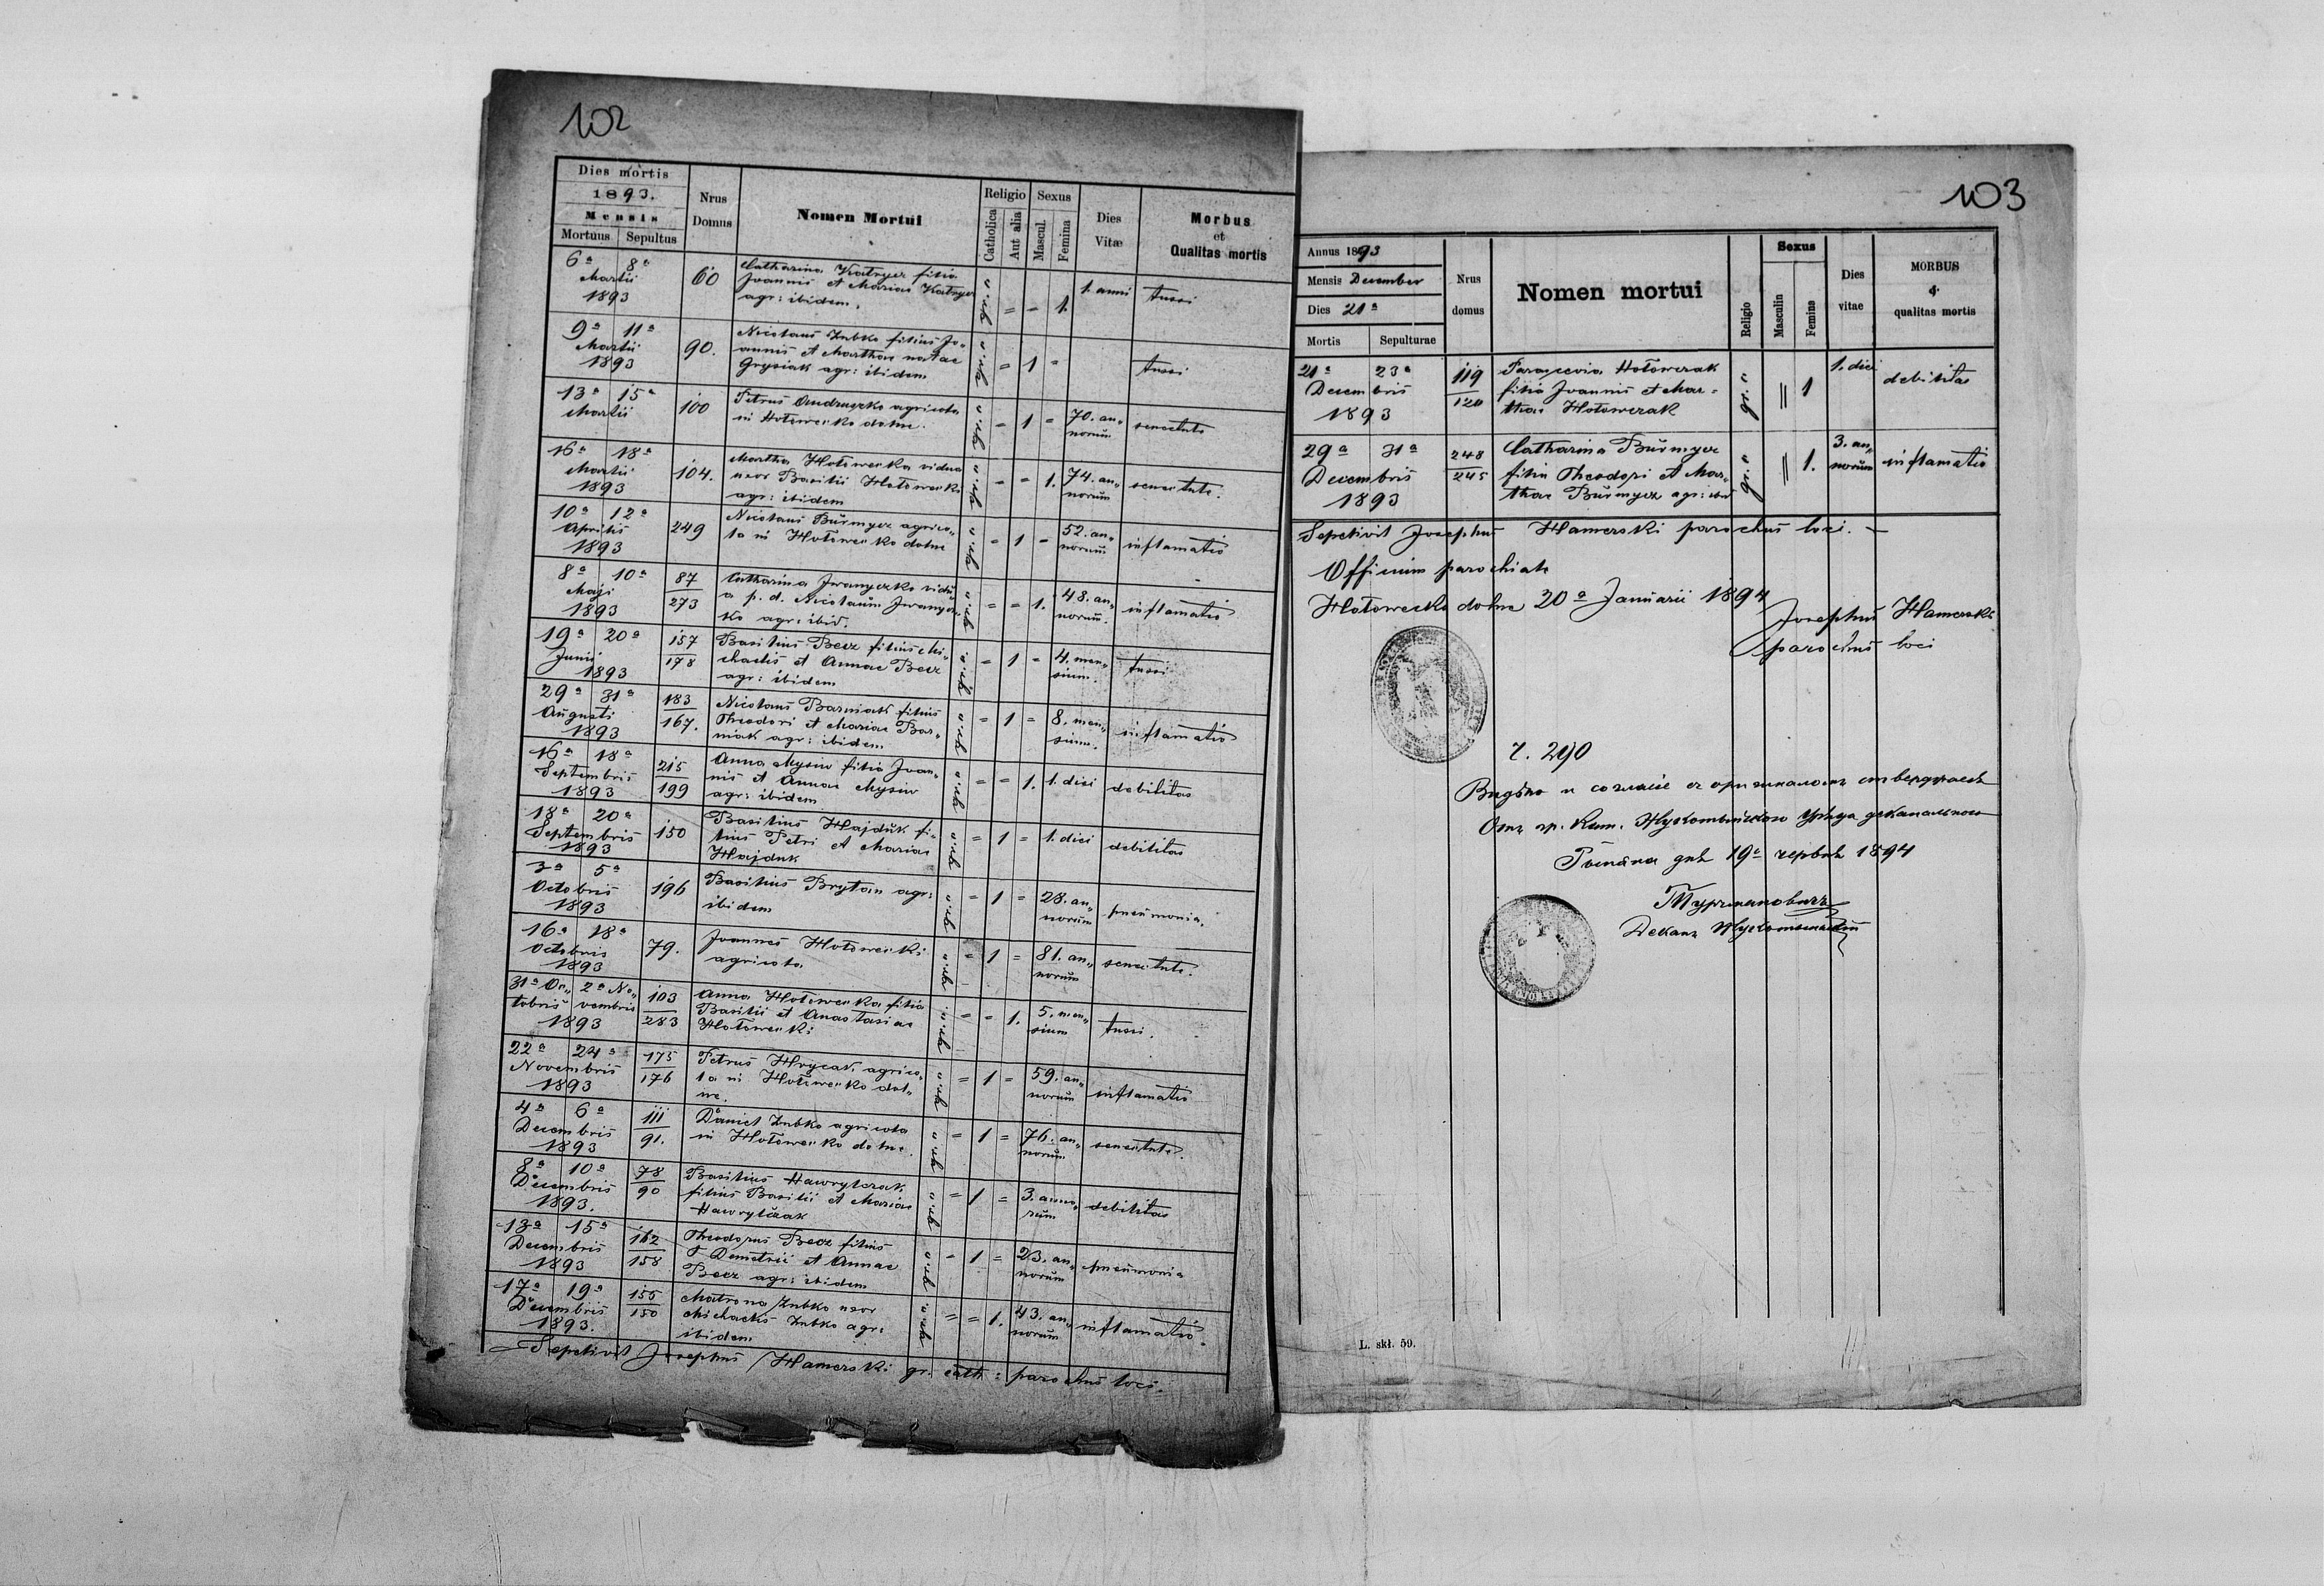 102
Dies mortis
1893.
Mensis
Mortuus Sepultus
Nrus
Domus
Nomen Mortui
Religio
Catholica
Aut alia
Sexus
Mascul.
Femina
Dies
Vitæ
Morbus
et
Qualitas mortis
6a 8a
Martii
1893
60
Catharina Katryez filia
Joannis et Mariae Katryez
agr: ibidem.
= - 1.
1. anni
tussi
9a 11a
Martii
1893
90.
Nicolaus Zubko filius Jo„
annis et Marthae natae
Grysiak agr: ibidem
= 1 =
tussi
13a 15a
Martii
100
Petrus Andruszko agricola
in Hołowecko dolne.
= 1 =
70. an„
norum
senectute
16a 18a
Martii
1893
104.
Martha Hołowecka vidua
uxor Basilii Hołowecki
agr: ibidem
= = 1.
74. an„
norum
senectute.
10a 12a
Aprilis
1893
249
Nicolaus Burmycz agrico„
la in Hołowecko dolne
= 1 =
52. an„
norum
inflamatio
8a 10a
Maji
1893
87
273
Catharina Iwanyczko vidu
a p. d. Nicolaum Iwanycz
ko agr: ibid.
= = 1.
48. an„
norum.
inflamatio
19a 20a
Junii
1893
157
178
Basilius Becz filius Mi„
chaelis et Annae Becz
agr: ibidem
= 1 =
4. men„
sium.
tussi
29a 31a
Augusti
1893
183
167.
Nicolaus Barniak filius
Theodori et Mariae Bar„
niak agr: ibidem
= 1 =
8. men„
sium.
inflamatio
16a 18a
Septembris
1893
215
199
Anna Mysiw filia Joan„
nis et Annae Mysiw
agr: ibidem
= = 1.
1. diei
debilitas
18a 20a
Septembris
1893
150
Basilius Hajduk fi„
lius Petri et Mariae
Hajduk
= 1 =
1. diei
debilitas
3a 5a
Octobris
1893
196
Basilius Brytan agr:
ibidem
= 1 =
28. an„
norum
pneumonia.
16a 18a
Octobris
1893
79.
Joannes Hołowecki
agricola
= 1 =
81. an„
norum
senectute.
31a Oc„ 2a No„
tobris vembris
1893
103
283
Anna Hołowecka filia
Basilii et Anastasiae
Hołowecki
= = 1.
5. men„
sium
tussi.
22a 24a
Novembris
1893
175
176
Petrus Hrycak agrico„
la in Hołowecko dol„
ne.
= 1 =
59. an„
norum
inflamatio
4a 6a
Decembris
1893
111
91.
Daniel Zubko agricola
in Hołowecko dolne.
= 1 =
76. an„
norum
senectute.
8a 10a
Decembris
1893.
78
90
Basilius Hawryłczak
filius Basilii et Mariae
Hawryłczak
= 1 =
3. anno„
rum
debilitas
13a 15a
Decembris
1893
162
158
Theodorus Becz filius
Demetrii et Annae
Becz agr: ibidem
= 1 =
23. an„
norum
pneumonia
17a 19a
Decembris
1893.
155
150
Matrona Zubko uxor
Michaelis Zubko agr:
ibidem
= = 1.
43. an„
norum
inflamatio.
Sepelivit Josephus Hamerski gr. cath: parochus loci.
103
Annus 1893
Mensis December
Dies 21a
Mortis Sepulturae
Nrus
domus
Nomen mortui
Religio
Sexus
Masculin
Femina
Dies
vitae
MORBUS
qualitas mortis
21a 23a
Decembris
1893
119
120
Parascevia Hołowczak
filia Joannis et Mar„
thae Hołowczak
gr. c
= 1
1. diei
debilitas
29a 31a
Decembris
1893
248
245
Catharina Burmycz
filia Theodori et Mar„
thae Burmycz agr: ibid
gr. c
= 1.
3. an„
norum
inflamatio
Sepelivit Josephus Hamerski parochus loci.
Officium parochiale
Hołowecko dolne 20a Januarii 1894
Josephus Hamerski
parochus loci
Ч. 290
Видѣно и согласіе съ оригиналомъ стверджаесь
Отъ гр. кат. Жукотыньского Уряда деканального
дня 19го червня 1894
Деканъ Жукотынскій
L. skł. 59.